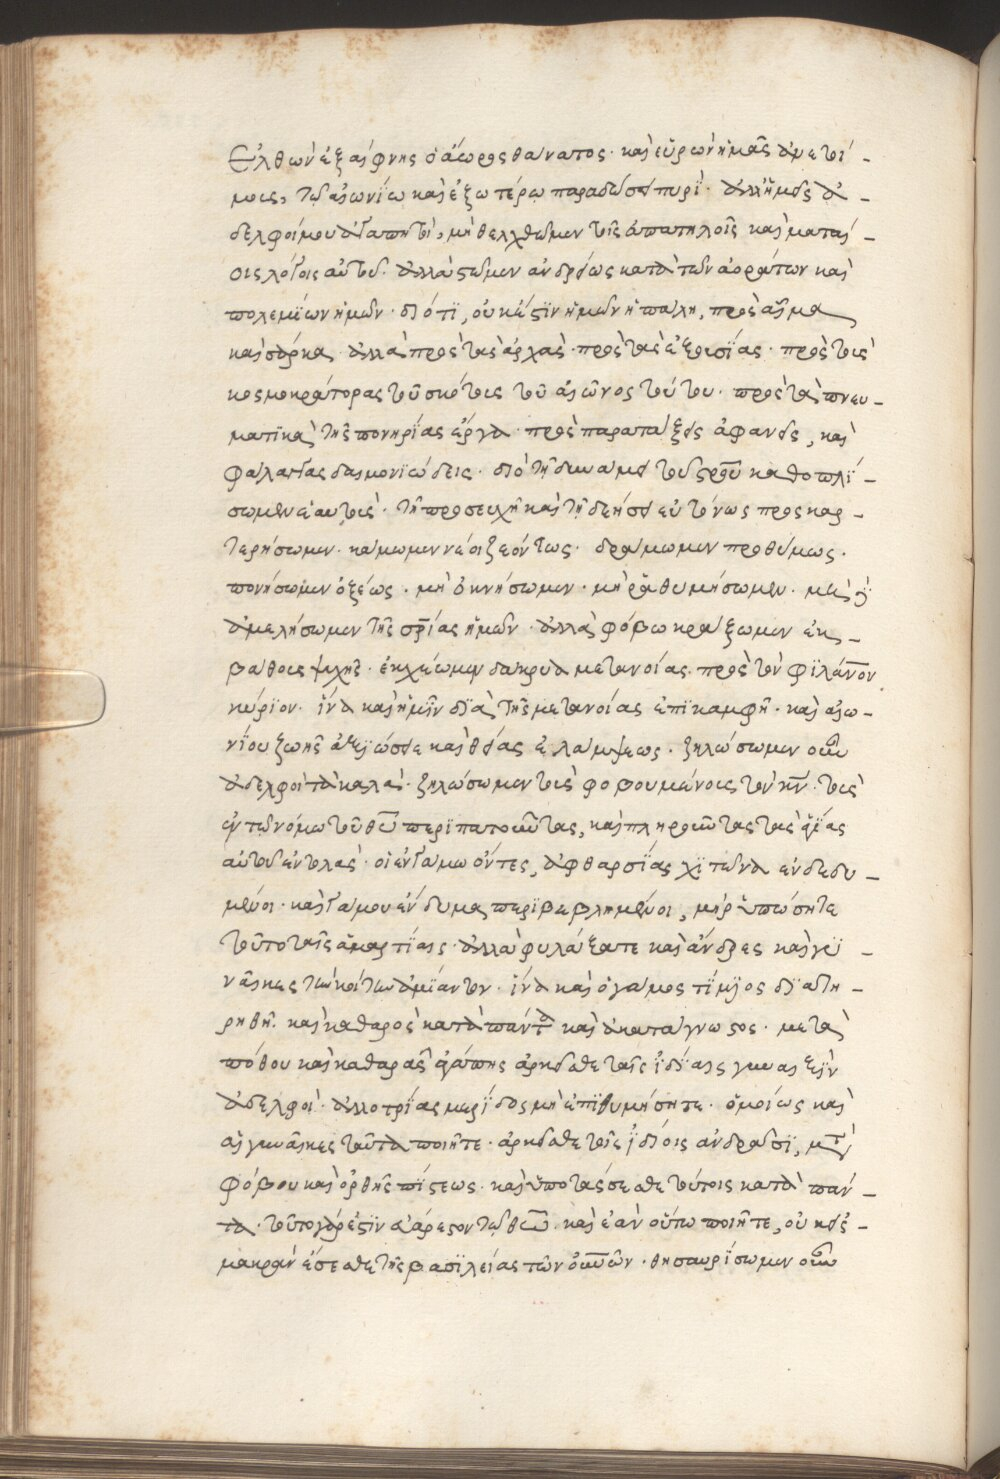 Ἐλθὼν ἐξαίφνης ὁ ἄωρος θάνατος· καὶ εὑρὼν ἡμᾶς ἀμετοί-
μους, τῷ αἰωνίῳ καὶ ἐξωτέρῳ παραδώσει πυρί· ἀλλ' ἡμεῖς ἀ-
δελφοί μου ἀγαπητοὶ, μὴ θελχθῶμεν τοῖς ἀπατηλοῖς καὶ ματαί-
οις λόγοις αὐτοῦ· ἀλλὰ στῶμεν ἀνδρείως κατὰ τῶν ἀοράτων καὶ
πολεμίων ἡμῶν· διότι, οὐκ ἔστιν ἡμῶν ἡ πάλη, πρὸς αἷμα
καὶ σάρκα· ἀλλὰ πρὸς τὰς ἀρχὰς· πρὸς τὰς ἐξουσίας· πρὸς τοὺς
κοσμοκράτορας τοῦ σκότους τοῦ αἰῶνος τούτου· πρὸς τὰ πνευ-
ματικὰ τῆς πονηρίας ἔργα· πρὸς παρατάξεις ἀφανεῖς, καὶ
φάλαγγας δαιμονιώδεις· διὸ τῇ δυνάμει τοῦ στροῦ καθοπλί-
σωμεν ἑαυτοὺς· τῇ προσευχῇ καὶ τῇ δεήσει εὐτόνως προσκαρ-
τερήσωμεν· κάμωμεν νέοι ζεόντως· δράμωμεν προθύμως·
πονήσωμεν ὀξέως· μὴ ὀκνήσωμεν· μὴ ῥαθυμήσωμεν·
ἀμελήσωμεν τῆς σρίας ἡμῶν· ἀλλὰ φόβῳ κράξωμεν ἐκ
βάθους ψυχῆς· ἐκχέωμεν δάκρυα μετανοίας πρὸς τὸν φιλάνον
κύριον· ἵνα καὶ ἡμῖν διὰ τῆς μετανοίας ἐπικαμφῇ· καὶ αἰω-
νίου ζωῆς ἀξιώσει καὶ θείας ἐλάμψεως· ζηλώσωμεν οὖν
ἀδελφοὶ τὰ καλὰ· ζηλώσωμεν τοὺς φοβουμένους τὸν κν· τοὺς
ἐν τῷ νόμῳ τοῦ θυ περιπατοῦντας, καὶ πληροῦντας τὰς ἁγίας
αὐτοῦ ἐντολάς· οἱ ἐν γάμῳ ὄντες, ἀφθαρσίας χιτῶνα ἐνδεδυ-
μένοι· καὶ γάμου ἔνδυμα περιβεβλημένοι, μὴ ῥυπώσητε
τοῦτο ταῖς ἁμαρτίαις· ἀλλὰ φυλάξατε καὶ ἄνδρες καὶ γυ-
ναῖκες τὴν κοίτην ἀμίαντον· ἵνα καὶ ὁ γάμος τίμιος διατη-
ρηθῇ· καὶ καθαρὸς κατὰ πάντα καὶ ἀκατάγνωστος· μετὰ
πόθου καὶ καθαρᾶς ἀγάπης ἀρκεῖσθε ταῖς ἰδίαις γυναιξὶν
ἀδελφοί· ἀλλοτρίας μερίδος μὴ ἐπιθυμήσητε· ὁμοίως καὶ
αἱ γυναῖκες ταῦτα ποιῆτε· ἀρκεῖσθε τοῖς ἰδίοις ἀνδράσι, μετὰ
φόβου καὶ ὀρθῆς πίστεως· καὶ ὑποτάσσεσθε τούτοις κατὰ πάν-
τα· τοῦτο γάρ ἐστιν εὐάρεστον τῷ θεῶ· καὶ ἐὰν οὕτω ποιῆτε, οὐκ εἰς
μακρὰν ἔσεσθε τῆς βασιλείας τῶν οὐνῶν· θησαυρίσωμεν οὖν